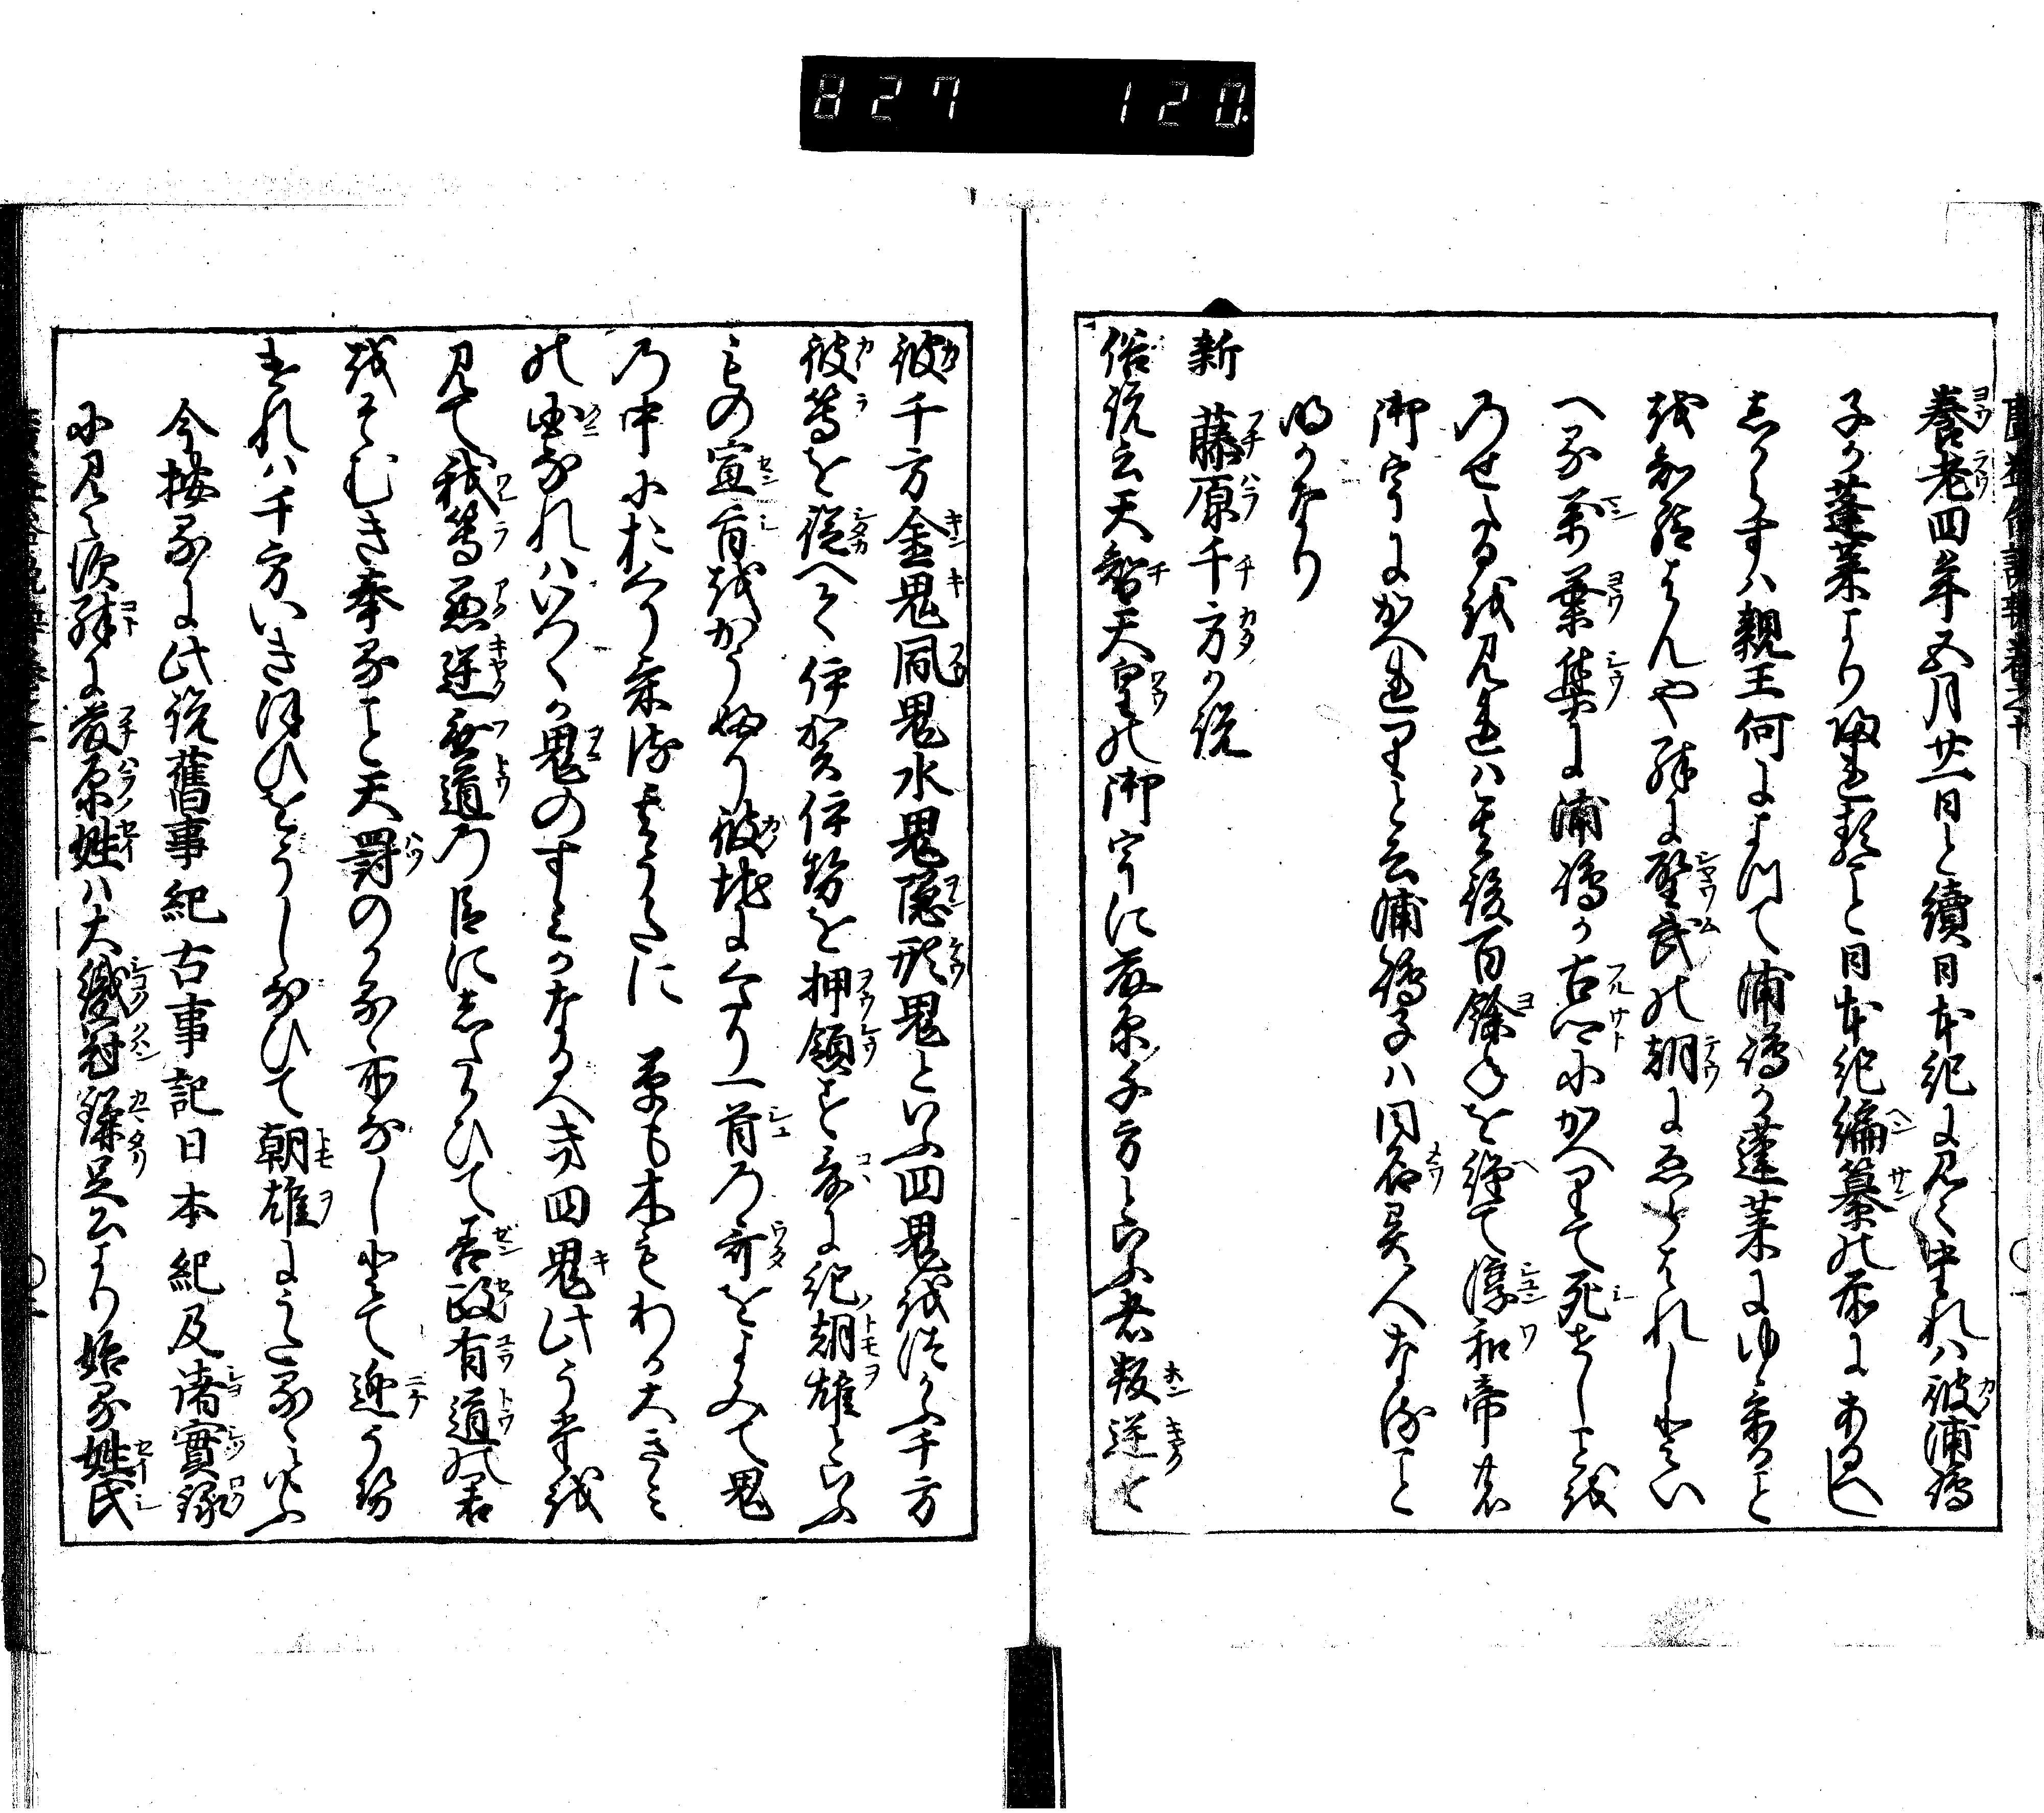 827 120
養老四年五月廿一日と續日本紀に見えたれハ彼浦嶋
子か蓬莱より帰れる事ハ日本紀編纂の前にあるへし
しからすハ親王何によつて浦嶋か蓬莱にゆける事
を知給はんや殊に聖武の朝にゑらはれしといへ
へる萬葉集に浦嶋か古郷にかへりて死せし事を
のせたるを見れハ其後百餘年を經て淳和帝の
御宇にかへれりと云浦嶋子ハ同名異人なる事
明らかなり
新 藤原千方か説
俗説云天智天皇の御宇に藤原千方といふ者叛逆せり
彼千方金鬼風鬼水鬼隠形鬼といふ四鬼をつかふ千方
彼等を従へて伊賀伊勢を押領す爰に紀朝雄といふ
もの宣旨をかうふり彼地にくたり一首の哥をよみて鬼
の中におくり来る其うたに 草も木もわか大きみ
の国なれハいつくか鬼のすみかなるへき四鬼此うたを
見て我等悪逆無道の臣にしたかひて善政有道の君
をそむき奉る事天罰のかるゝ所なしとて迯うせ
けれハ千方いきほひをうしなひて朝雄にうたるゝといふ
今按るに此説舊事紀古事記日本紀及諸實録
に見えす殊に藤原姓ハ大織冠鎌足公より始る姓氏